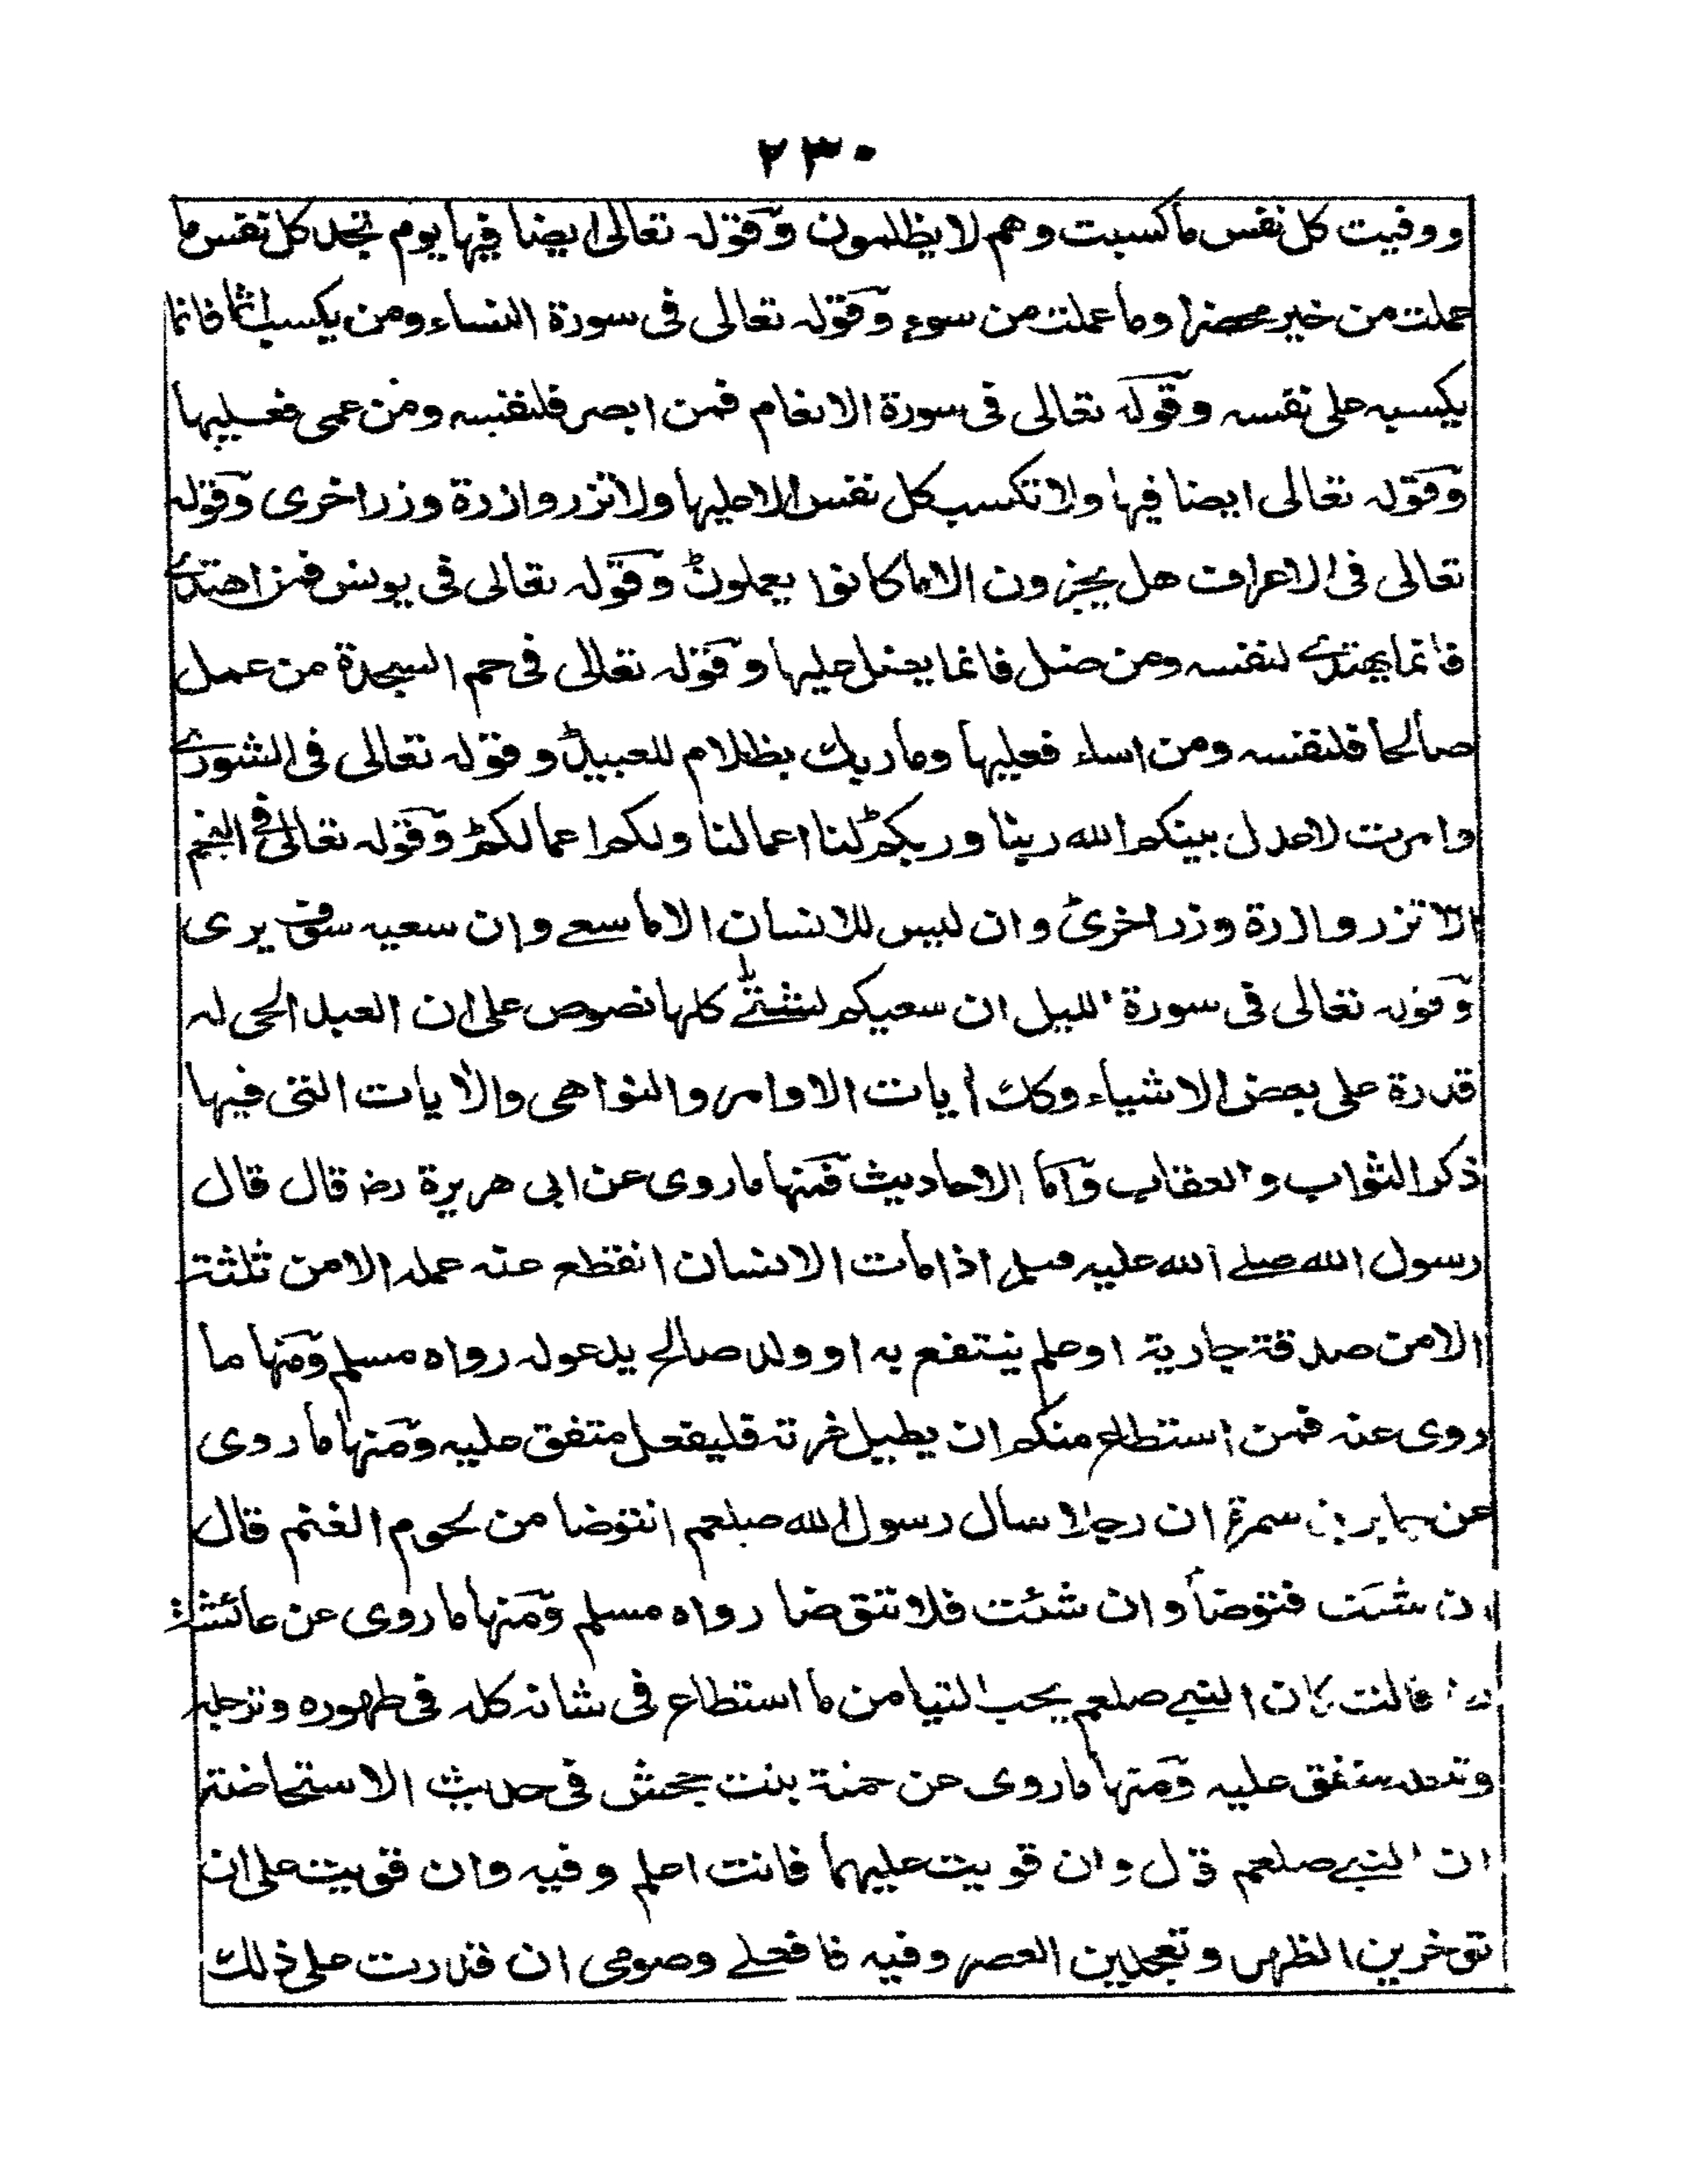 ٢٣٠
ووفيت كل نفس ما كسبت وهم لا يظلمون وقوله تعالى ايضا فيها يوم تجد كل نفس ما
عملت من خير محضرا وما عملت من سوء وقوله تعالى فى سورة النساء ومن يكسب اثما فانما
يكسبه على نفسه وقوله تعالى فى سورة الانعام فمن ابصر فلنفسه ومن عمى فعليها
وقوله تعالى ايضا فيها ولا تكسب كل نفس الا عليها ولا تزر وازرة وزر اخرى وقوله
تعالى فى الاعراف هل يجزون الا ما كانوا يعملون وقوله تعالى فى يونس فمن اهتدے
فانما يهتدے لنفسه ومن ضل فانما يضل عليها وقوله تعالى فى حم السجدة من عمل
صالحا فلنفسه ومن اساء فعليها وما ربك بظلام للعبيد وقوله تعالى فى الشورے
وامرت لاعدل بينكم الله ربنا وربكم لنا اعمالنا ولكم اعمالكم وقوله تعالى فى النجم
الا تزر وازرة وزر اخرى وان ليس للانسان الا ما سعے وان سعيه سوف يرى
وقوله تعالى فى سورة الليل ان سعيكم لشتے كلها نصوص على ان العبد الحى له
قدرة على بعض الاشياء وكك ايات الاوامر والنواهى والايات التى فيها
ذكر الثواب والعقاب واما الاحاديث فمنها ما روى عن ابى هريرة رض قال قال
رسول الله صلے الله عليه وسلم اذا مات الانسان انقطع عنه عمله الا من ثلثة
الا من صدقة جارية او علم ينتفع به او ولد صالح يدعو له رواه مسلم ومنها ما
روى عنه فمن استطاع منكم ان يطيل غرته فليفعل متفق عليه ومنها ما روى
عن جابر بن سمرة ان رجلا سال رسول الله صلعم انتوضا من لحوم الغنم قال
ان شئت فتوضأ وان شئت فلا تتوضا رواه مسلم ومنها ما روى عن عائشة
قالت كان النبے صلعم يحب التيامن ما استطاع فى شانه كله فى طهوره وترجله
وتنعله متفق عليه ومنها ما روى عن حمنة بنت جحش فى حديث الاستحاضة
ان النبے صلعم قال وان قويت عليهما فانت اعلم وفيه وان قويت على ان
توخرين الظهر وتعجلين العصر وفيه فافعلے وصومى ان قدرت على ذلك